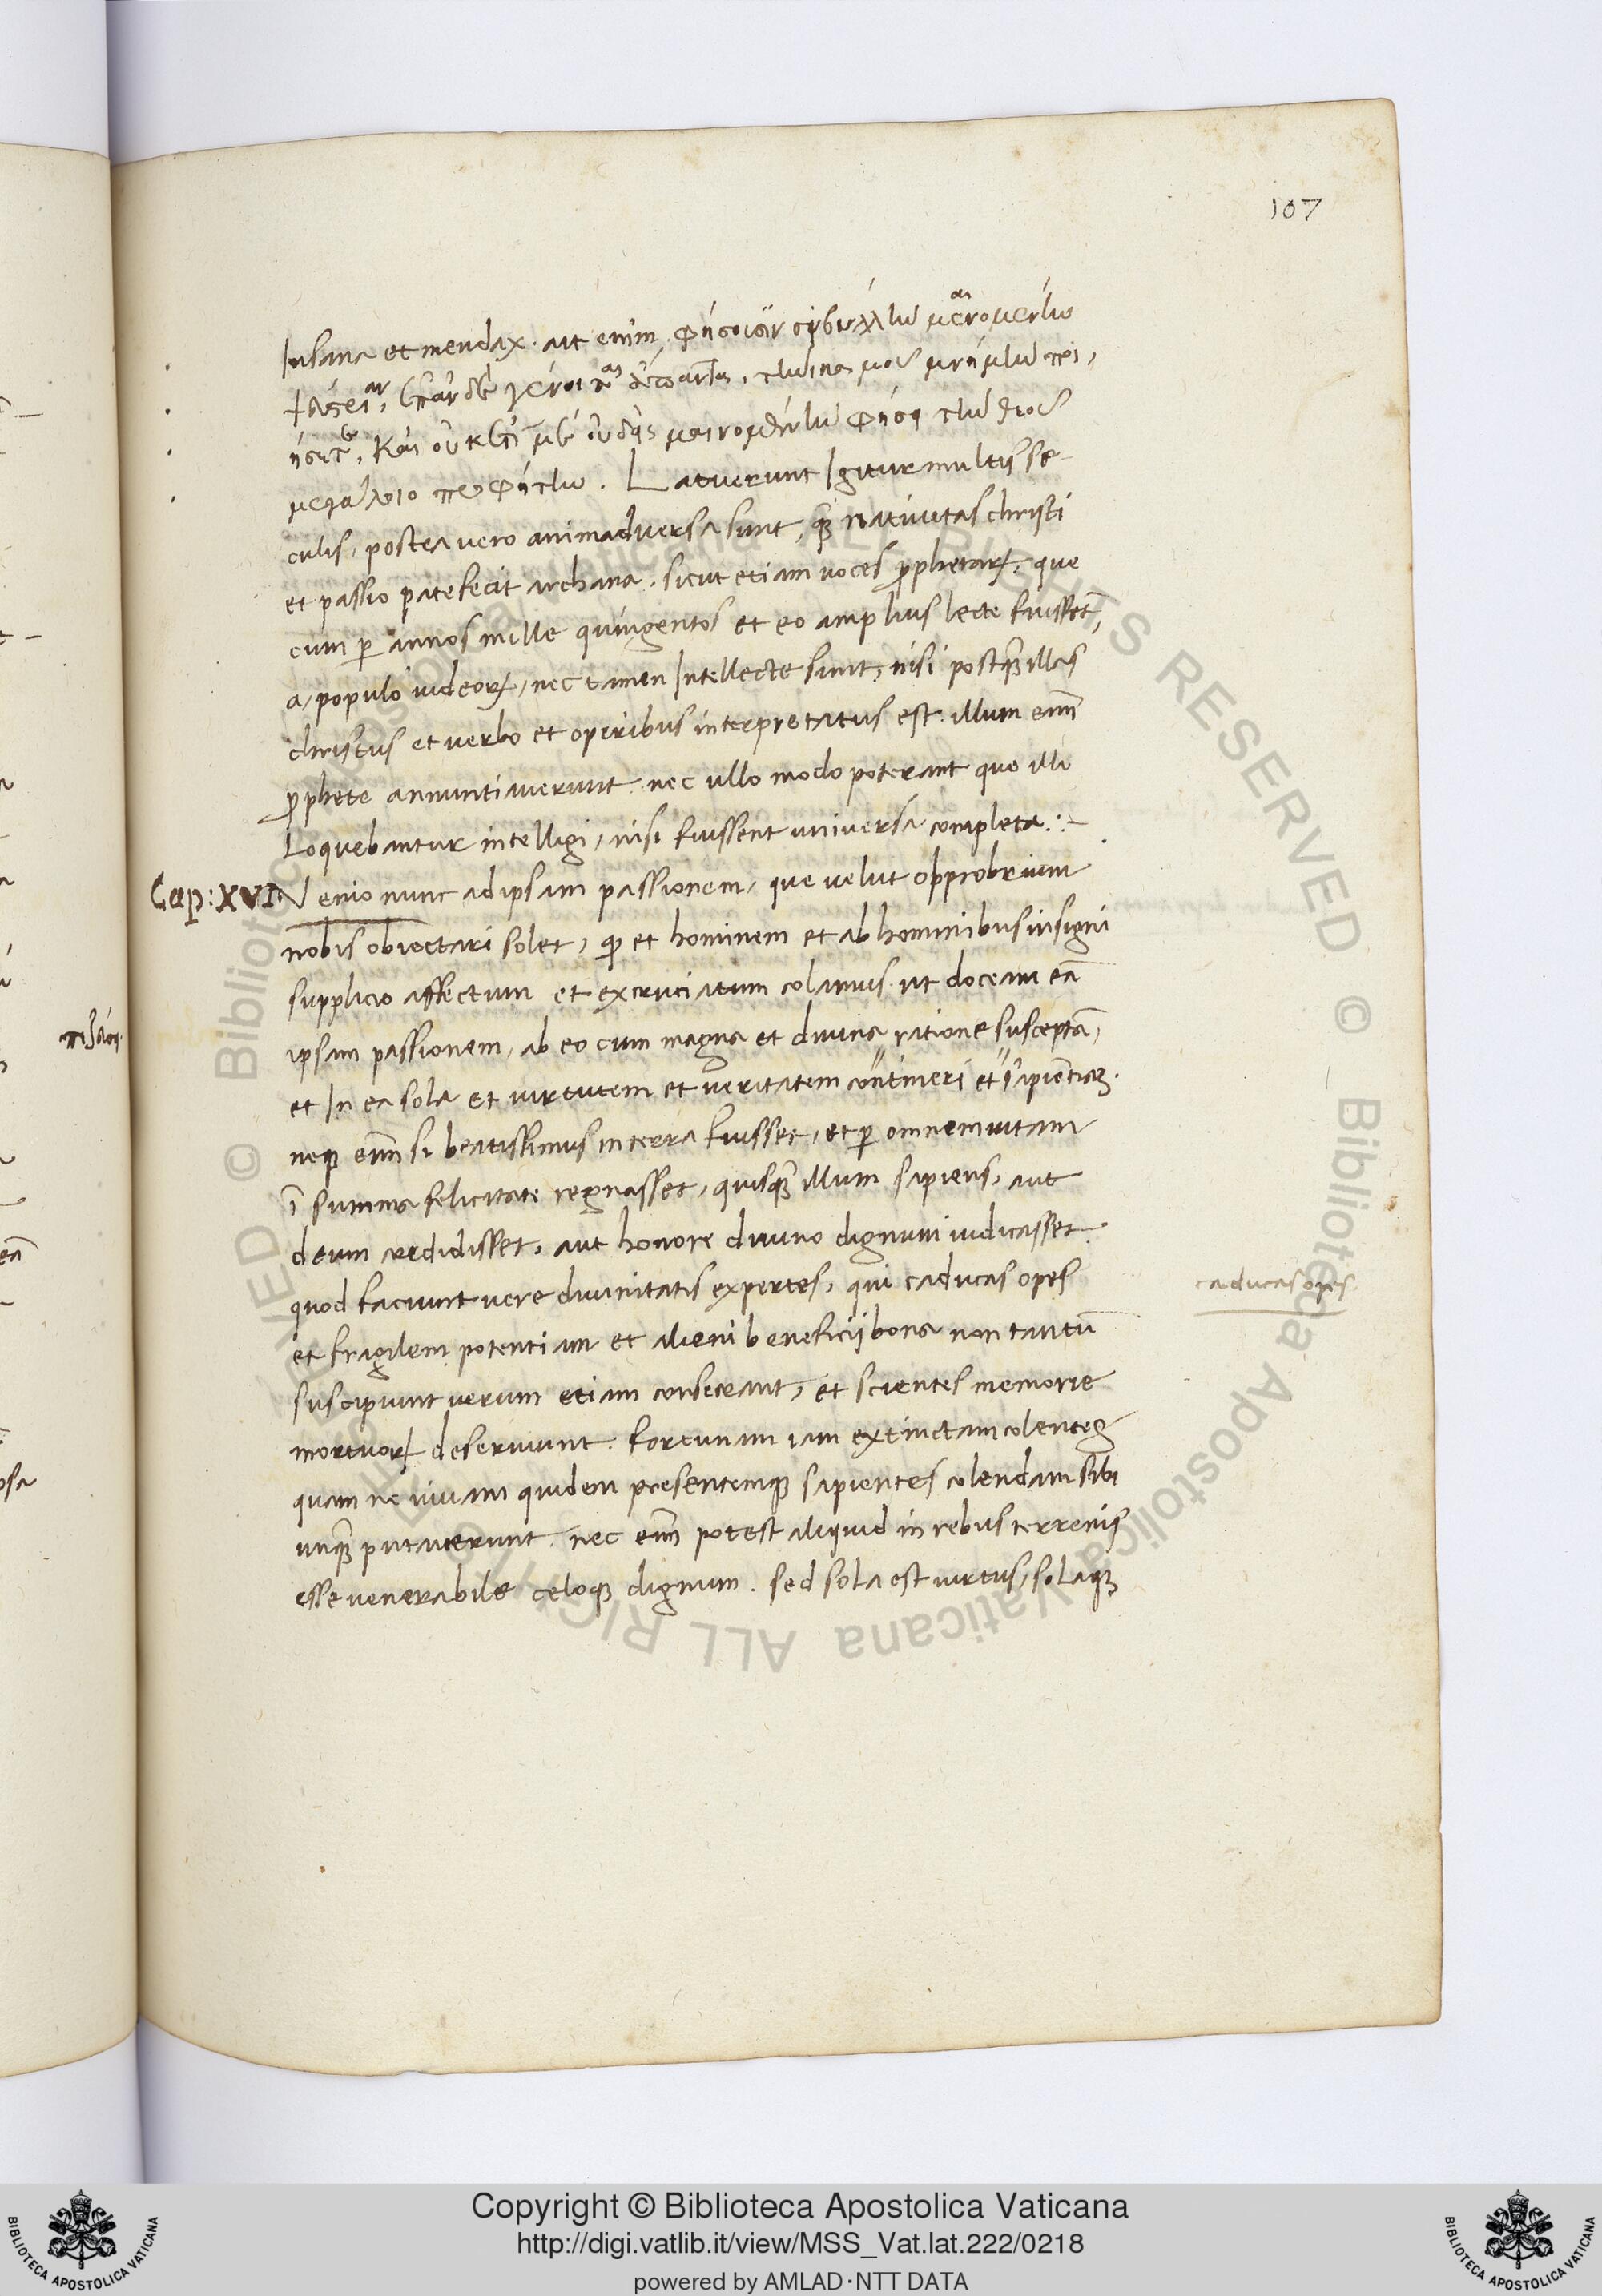 107
Insana et mendax. ait enim. φήσουσιν σιβύλλην μαινομένην
culis, postea vero animadversa sunt, quã nativitas christi
et passio patefecit archana. sicut etiam voces ꝓphetaꝝ. que
cum ꝑ annos mille quingentos et eo amplius lecte fuissẽt,
a, populo iudeoꝝ, nec tamen Intellecte sunt, nisi postquã illas
christus et verbo et operibus interpretatus est. illum enĩ
ꝓphete annuntiaverunt. nec ullo modo poterant que illi
Loquebantur intelligi, nisi fuissent universa completa.:-
Cap: XVI Venio nunc ad ipsam passionem, que velut opprobrium
nobis obiectari solet, ꝙ et hominem et ab hominibus insigni
supplicio affectum et excruciatum colamus. ut doceam eã
ipsam passionem, ab eo cum magna et divina ratione susceptã,
et In ea sola et virtutem et veritatem contineri et sapientiaꝫ.
neqꝫ enĩ si beatissimus in terra fuisset, et ꝑ omnem vitam
ĩ summa felicitate regnasset, quisquã illum sapiens, aut
deum credidisset, aut honore divino dignum iudicasset.
quod faciunt vere divinitatis expertes, qui caducas opes
caducas opes
et fragilem potentiam et alieni beneficij bona non tantũ
suscipiunt verum etiam consecrant, et scientes memorie
mortuoꝝ deserviunt. fortunam iam extinctam colentes
quam ne vivam quidem presentemqꝫ sapientes colendam sibi
unquã putaverunt. nec enĩ potest aliquid in rebus terrenis
esse venerabile celoqꝫ dignum. sed sola est virtus, solaqꝫ
Copyright © Biblioteca Apostolica Vaticana
http://digi.vatlib.it/view/MSS_Vat.lat.222/0218
powered by AMLAD·NTT DATA
BIBLIOTECA APOSTOLICA VATICANA
BIBLIOTECA APOSTOLICA VATICANA